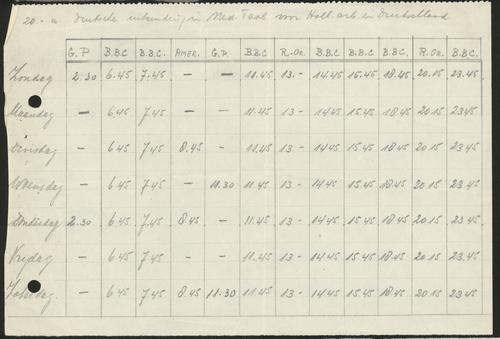 20 - u Deutsche uitzending in Ned Taal voor Holl arb in Deutschland
G.P B.B.C B.B.C. AMER. G.P. B.B.C R.-OR. B.B.C B.B.C B.B.C. R.OR. B.B.C.
Zondag 2.30 6.45 7.45 — — 11.45 13.- 14.45 15.45 18.45 20.15 23.45
Maandag — 6.45 7.45 — — 11.45 13 - 14.45 15.45 18.45 20 15 23 45
Dinsdag — 6 45 7 45 8.45 — 11.45 13 - 14 45 15.45 18.45 20 15 23 45
Woensdag — 6.45 7.45 — 11.30 11.45 13 - 14 45 15.45 18.45 20 15 23.45
Donderdag 2.30 6.45 7.45 8.45 — 11.45 13 - 14 45 15.45 18.45 20 15 23.45
Vrijdag — 6.45 7 45 — — 11.45 13 - 14 45 15 45 18.45 20 15 23.45
Zaterdag. — 6.45 7.45 8.45 11:30 11.45 13 - 14.45 15.45 18.45 20 15 23.45